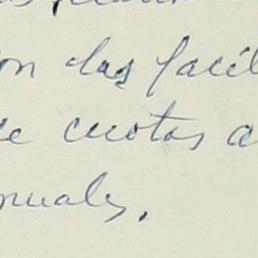 on las facil
de cuotas a
nuales.